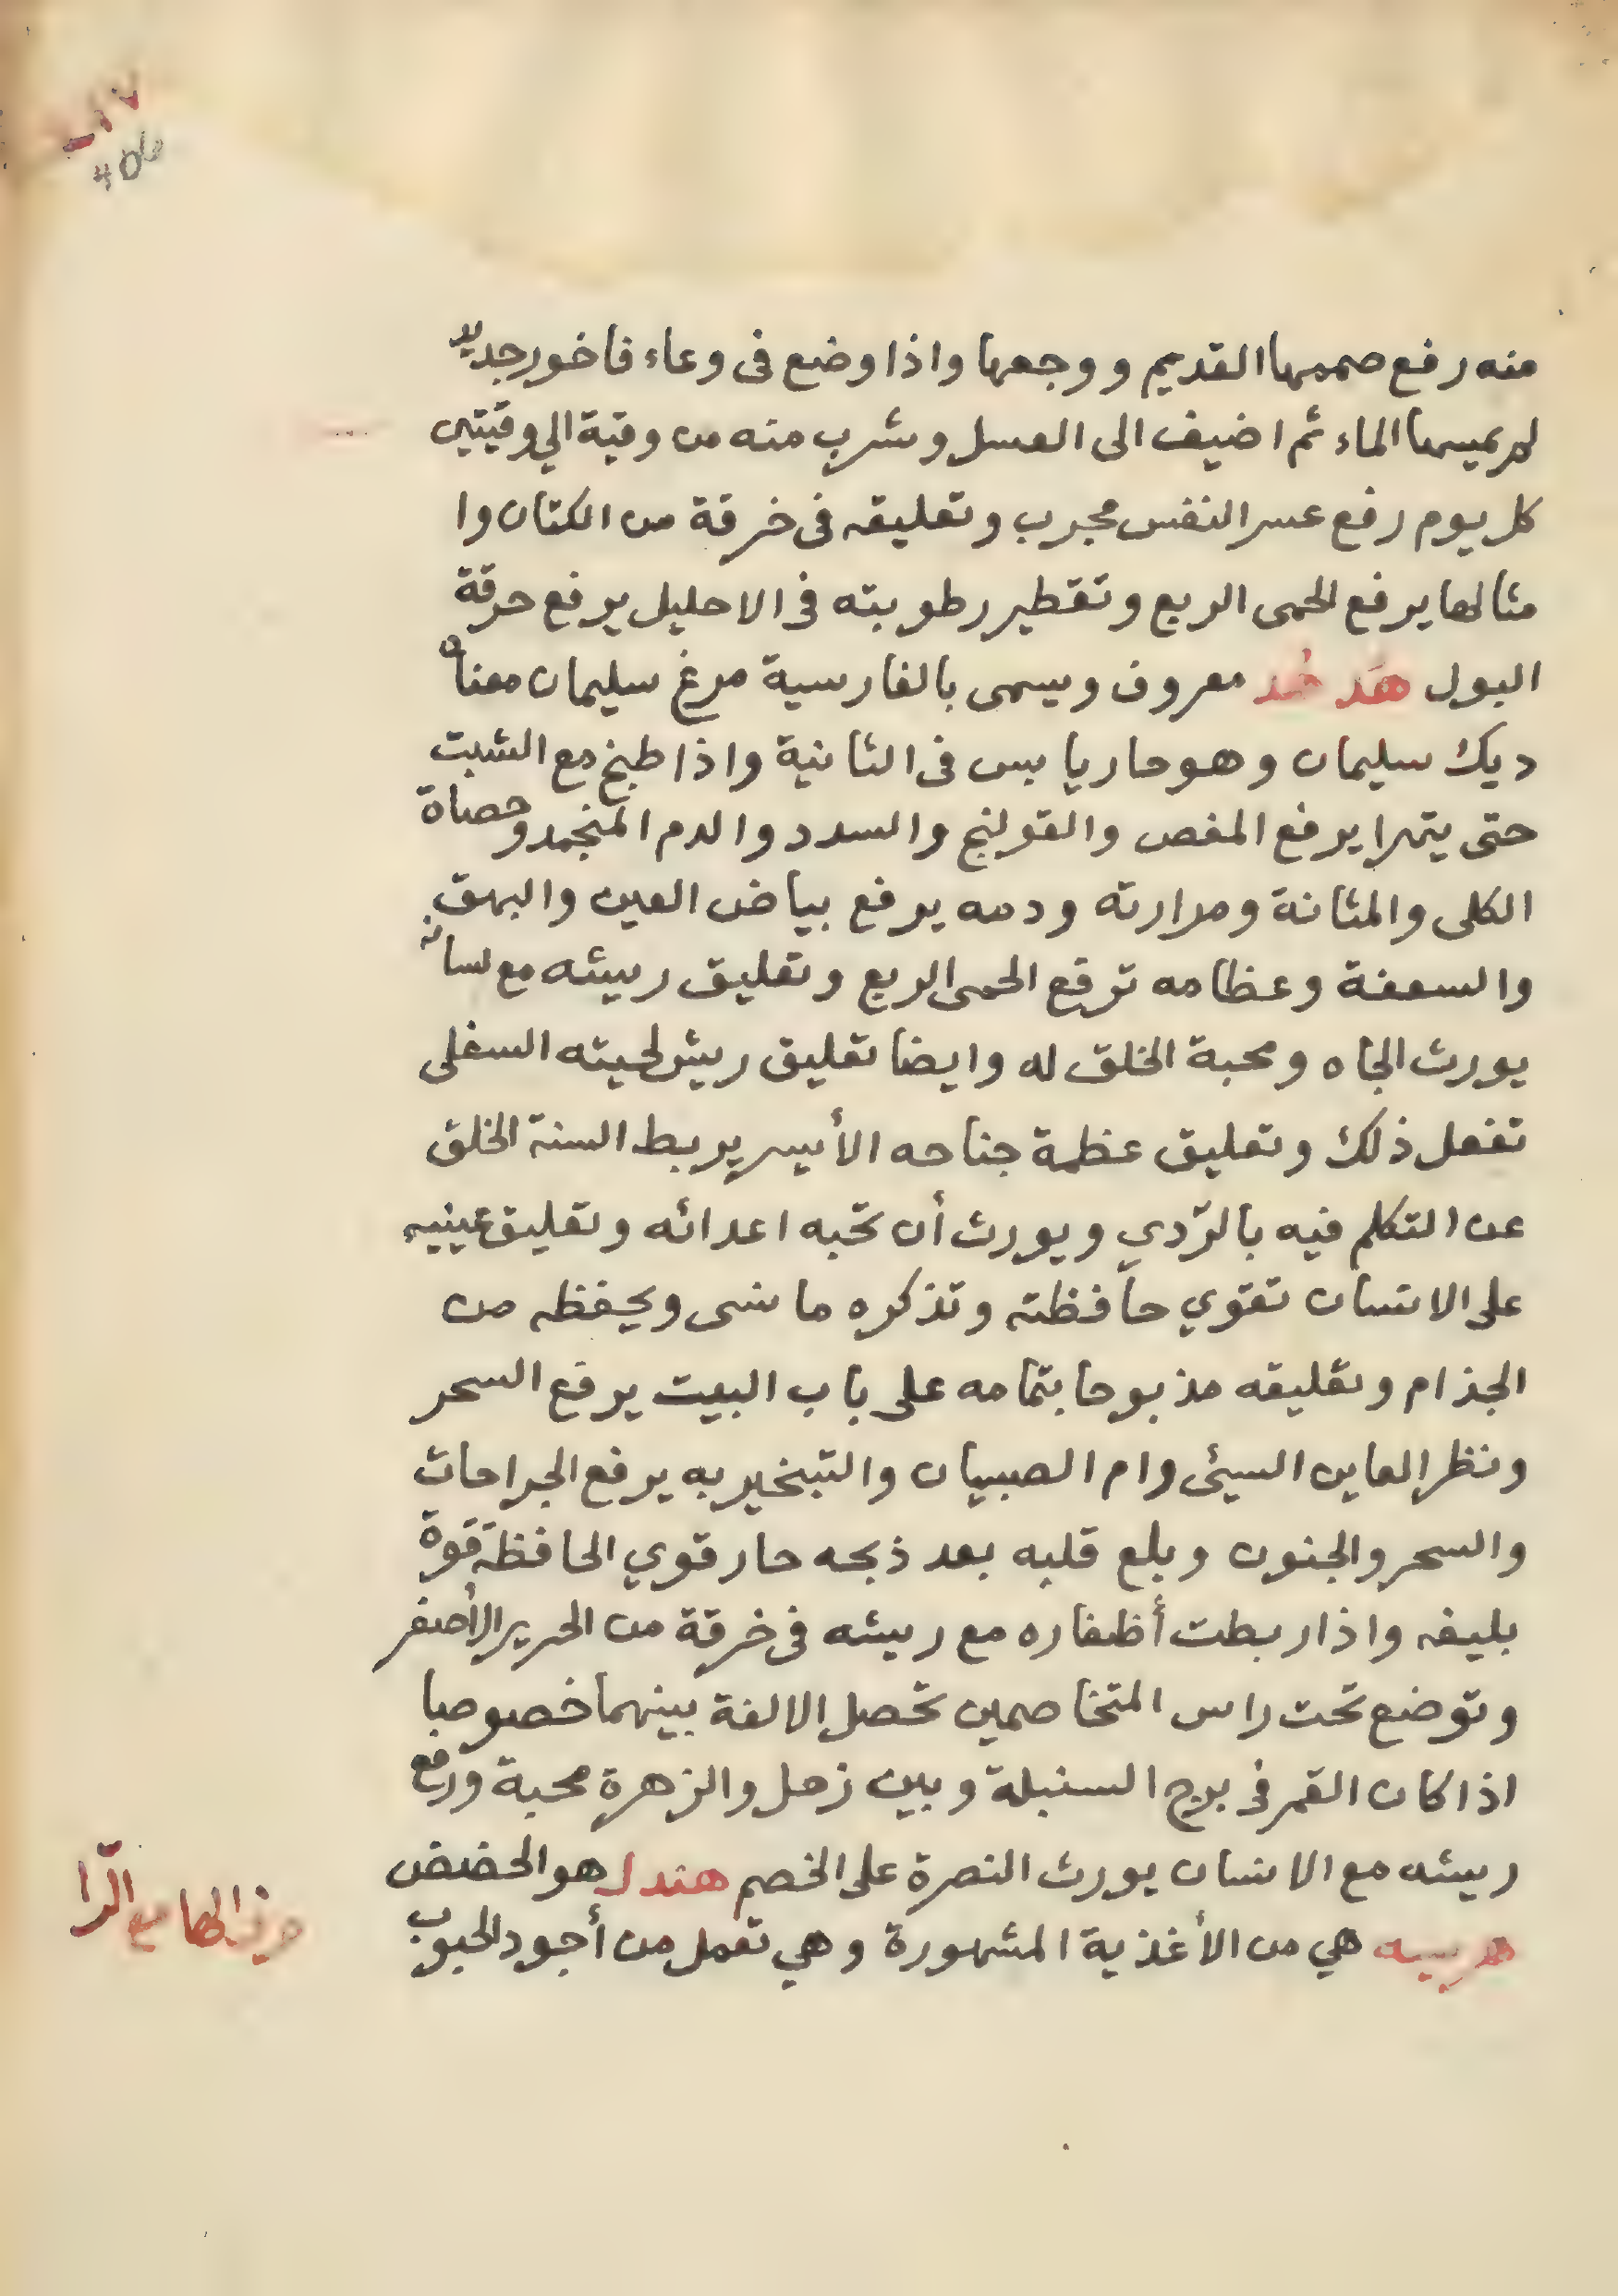 منه رفع صممها القديم ووجعها واذا وضع فى وعاء فاخور جديد
لم يمسها الماء ثم اضيف الى العسل وشرب منه من وقية الي وقيتين
كل يوم رفع عسر النفس مجرب وتعليقه فى خرقة من الكتان وا
مثالها يرفع الحمى الربع وتقطير رطوبته فى الاحليل يرفع حرقة
البول هَد هُد معروف ويسمى بالفارسية مرغ سليمان معناه
ديك سليمان وهو حار يابس فى الثانية واذا طبخ مع الشبت
حتى يتهرا يرفع المغص والقولنج والسدد والدم المنجمد وحصاة
الكلى والمثانة ومرارته ودمه يرفع بياض العين والبهق
والسعفة وعظامه ترفع الحمى الربع وتعليق ريشه مع لسانه
يورث الجاه ومحبة الخلق له وايضا تعليق ريش لحيته السفلى
تفعل ذلك وتعليق عظمة جناحه الأيسر يربط السنة الخلق
عن التكلم فيه بالرّدي ويورث أن تحبه اعدائه وتعليق عينيه
على الانسان تقوي حافظته وتذكره ما نسى ويحفظه من
الجذام وتعليقه مذبوحا بتمامه على باب البيت يرفع السحر
ونظر العاين السيئ وام الصبيان والتبخير به يرفع الجراحات
والسحر والجنون وبلع قلبه بعد ذبحه حار قوي الحافظة قوة
بليغه واذا ربطت أظفاره مع ريشه فى خرقة من الحرير الأصفر
وتوضع تحت راس المتخاصمين تحصل الالفة بينهما خصوصا
اذا كان القمر فى برج السنبلة وبين زحل والزهرة محبة ورفع
ريشه مع الانسان يورث النصرة على الخصم هندل هو الحضض
حرف الها مع الرّا
هريسه هي من الأغذية المشهورة وهي تعمل من أجود الحبوب